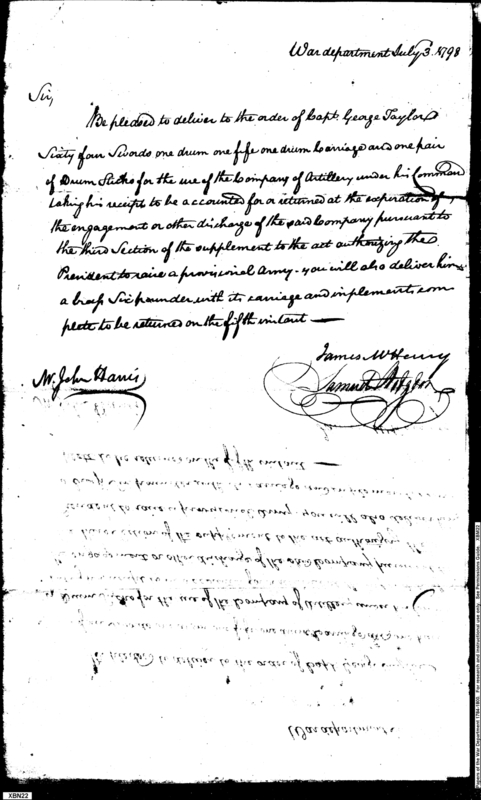 War department July 3d. 1798
Sir,
Be pleased to deliver to the order of Capt. George Taylor
Sixty four Swords one drum one fife one drum Carriage and one pair
of Drum Sticks for the use of the Company of Artillery under his Command
taking his receipt to be accounted for or returned at the expiration of
the engagement or other discharge of the said Company pursuant to
the third Section of the supplement to the act authorizing the
President to raise a provisional Army - you will also deliver him
a brass Six pounder with its carriage and implements com
plete to be returned on the fifth instant —
James McHenry
Mr. John Harris
Samuel Hodgdon
War department
XBN22
Papers of the War Department 1784-1800. For research and instructional use only. See Permissions Guide. XBN22